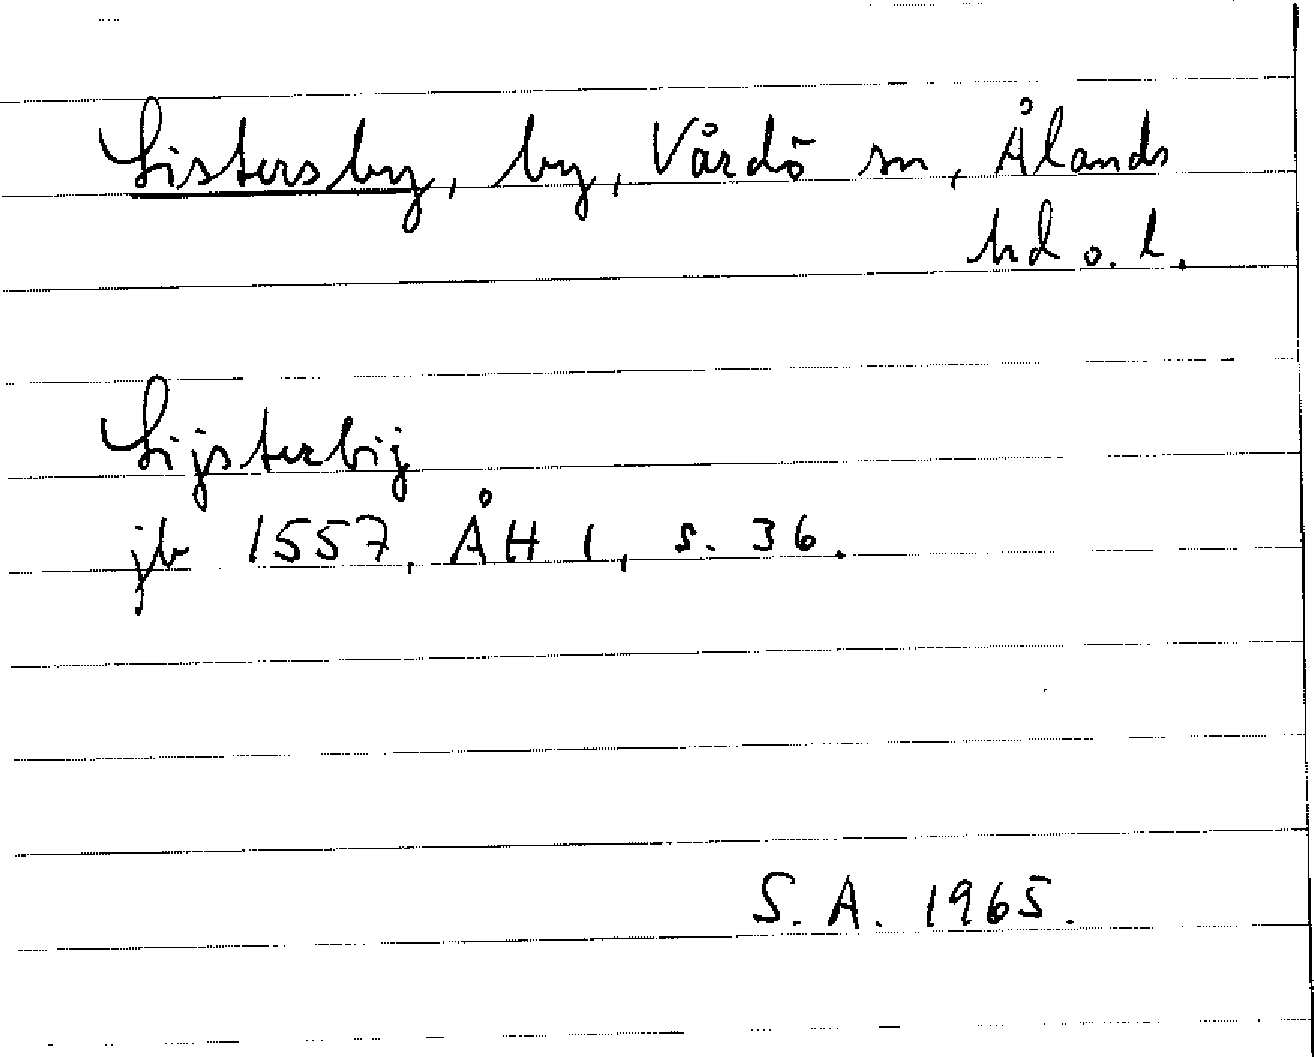 Listersby, by, Vårdö sn, Ålands
hd o. l.
Lijsterbij
jb 1557, ÅH 1, s. 36.
S. A. 1965.